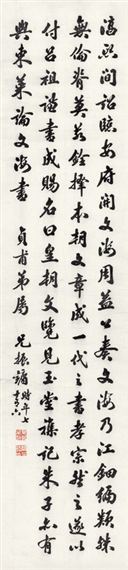 淳熙間詔臨安府開文海周益公奏文海乃江鈿編類殊
無倫脊莫若銓擇本朝文章成一代之書孝宗然之遂以
付呂祖謙書成賜名曰皇朝文鑒見玉堂雜記朱子亦有
與東萊論文海書
貞甫弟屬
兄振鏞時年